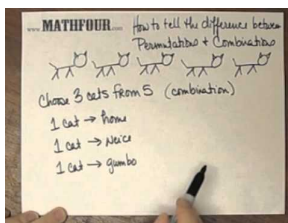 www.MATHFOUR.com How to tell the difference between
Permutations + Combinations
Choose 3 cats from 5 (combination)
1 cat → home
1 cat → Neice
1 cat → gumbo